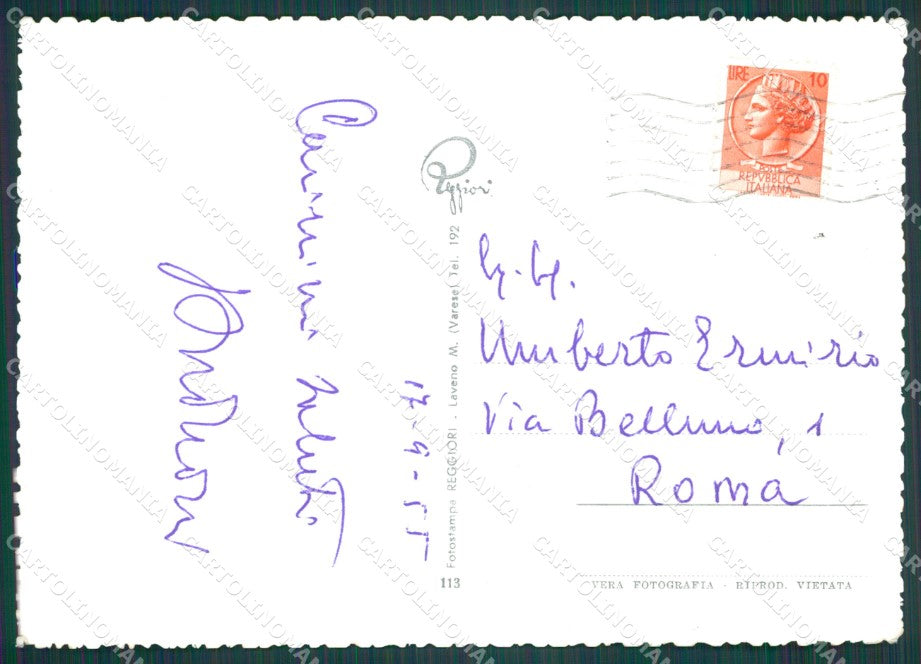 LIRE 10
POSTE
REPVBBLICA
ITALIANA
Reggiori
Carissimi saluti
17-9-55
Umberto Ermirio
Via Belluno, 1
Roma
Fotostampa REGGIORI - Laveno M. (Varese) Tel. 192
113
VERA FOTOGRAFIA - RIPROD. VIETATA
CARTOLINOMANIA